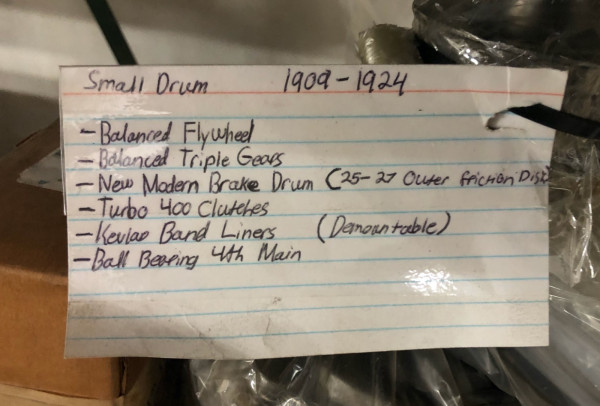 Small Drum 1909-1924
- Balanced Flywheel
- Balanced Triple Gears
- New Modern Brake Drum (25-27 Outer friction Disk)
- Turbo 400 Clutches
- Kevlar Band Liners (Demountable)
- Ball Bearing 4th Main